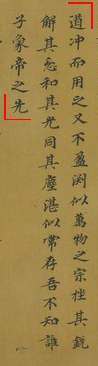 道冲而用之又不盈渊似萬物之宗挫其銳
解其忿和其光同其塵湛似常存吾不知誰
子象帝之先